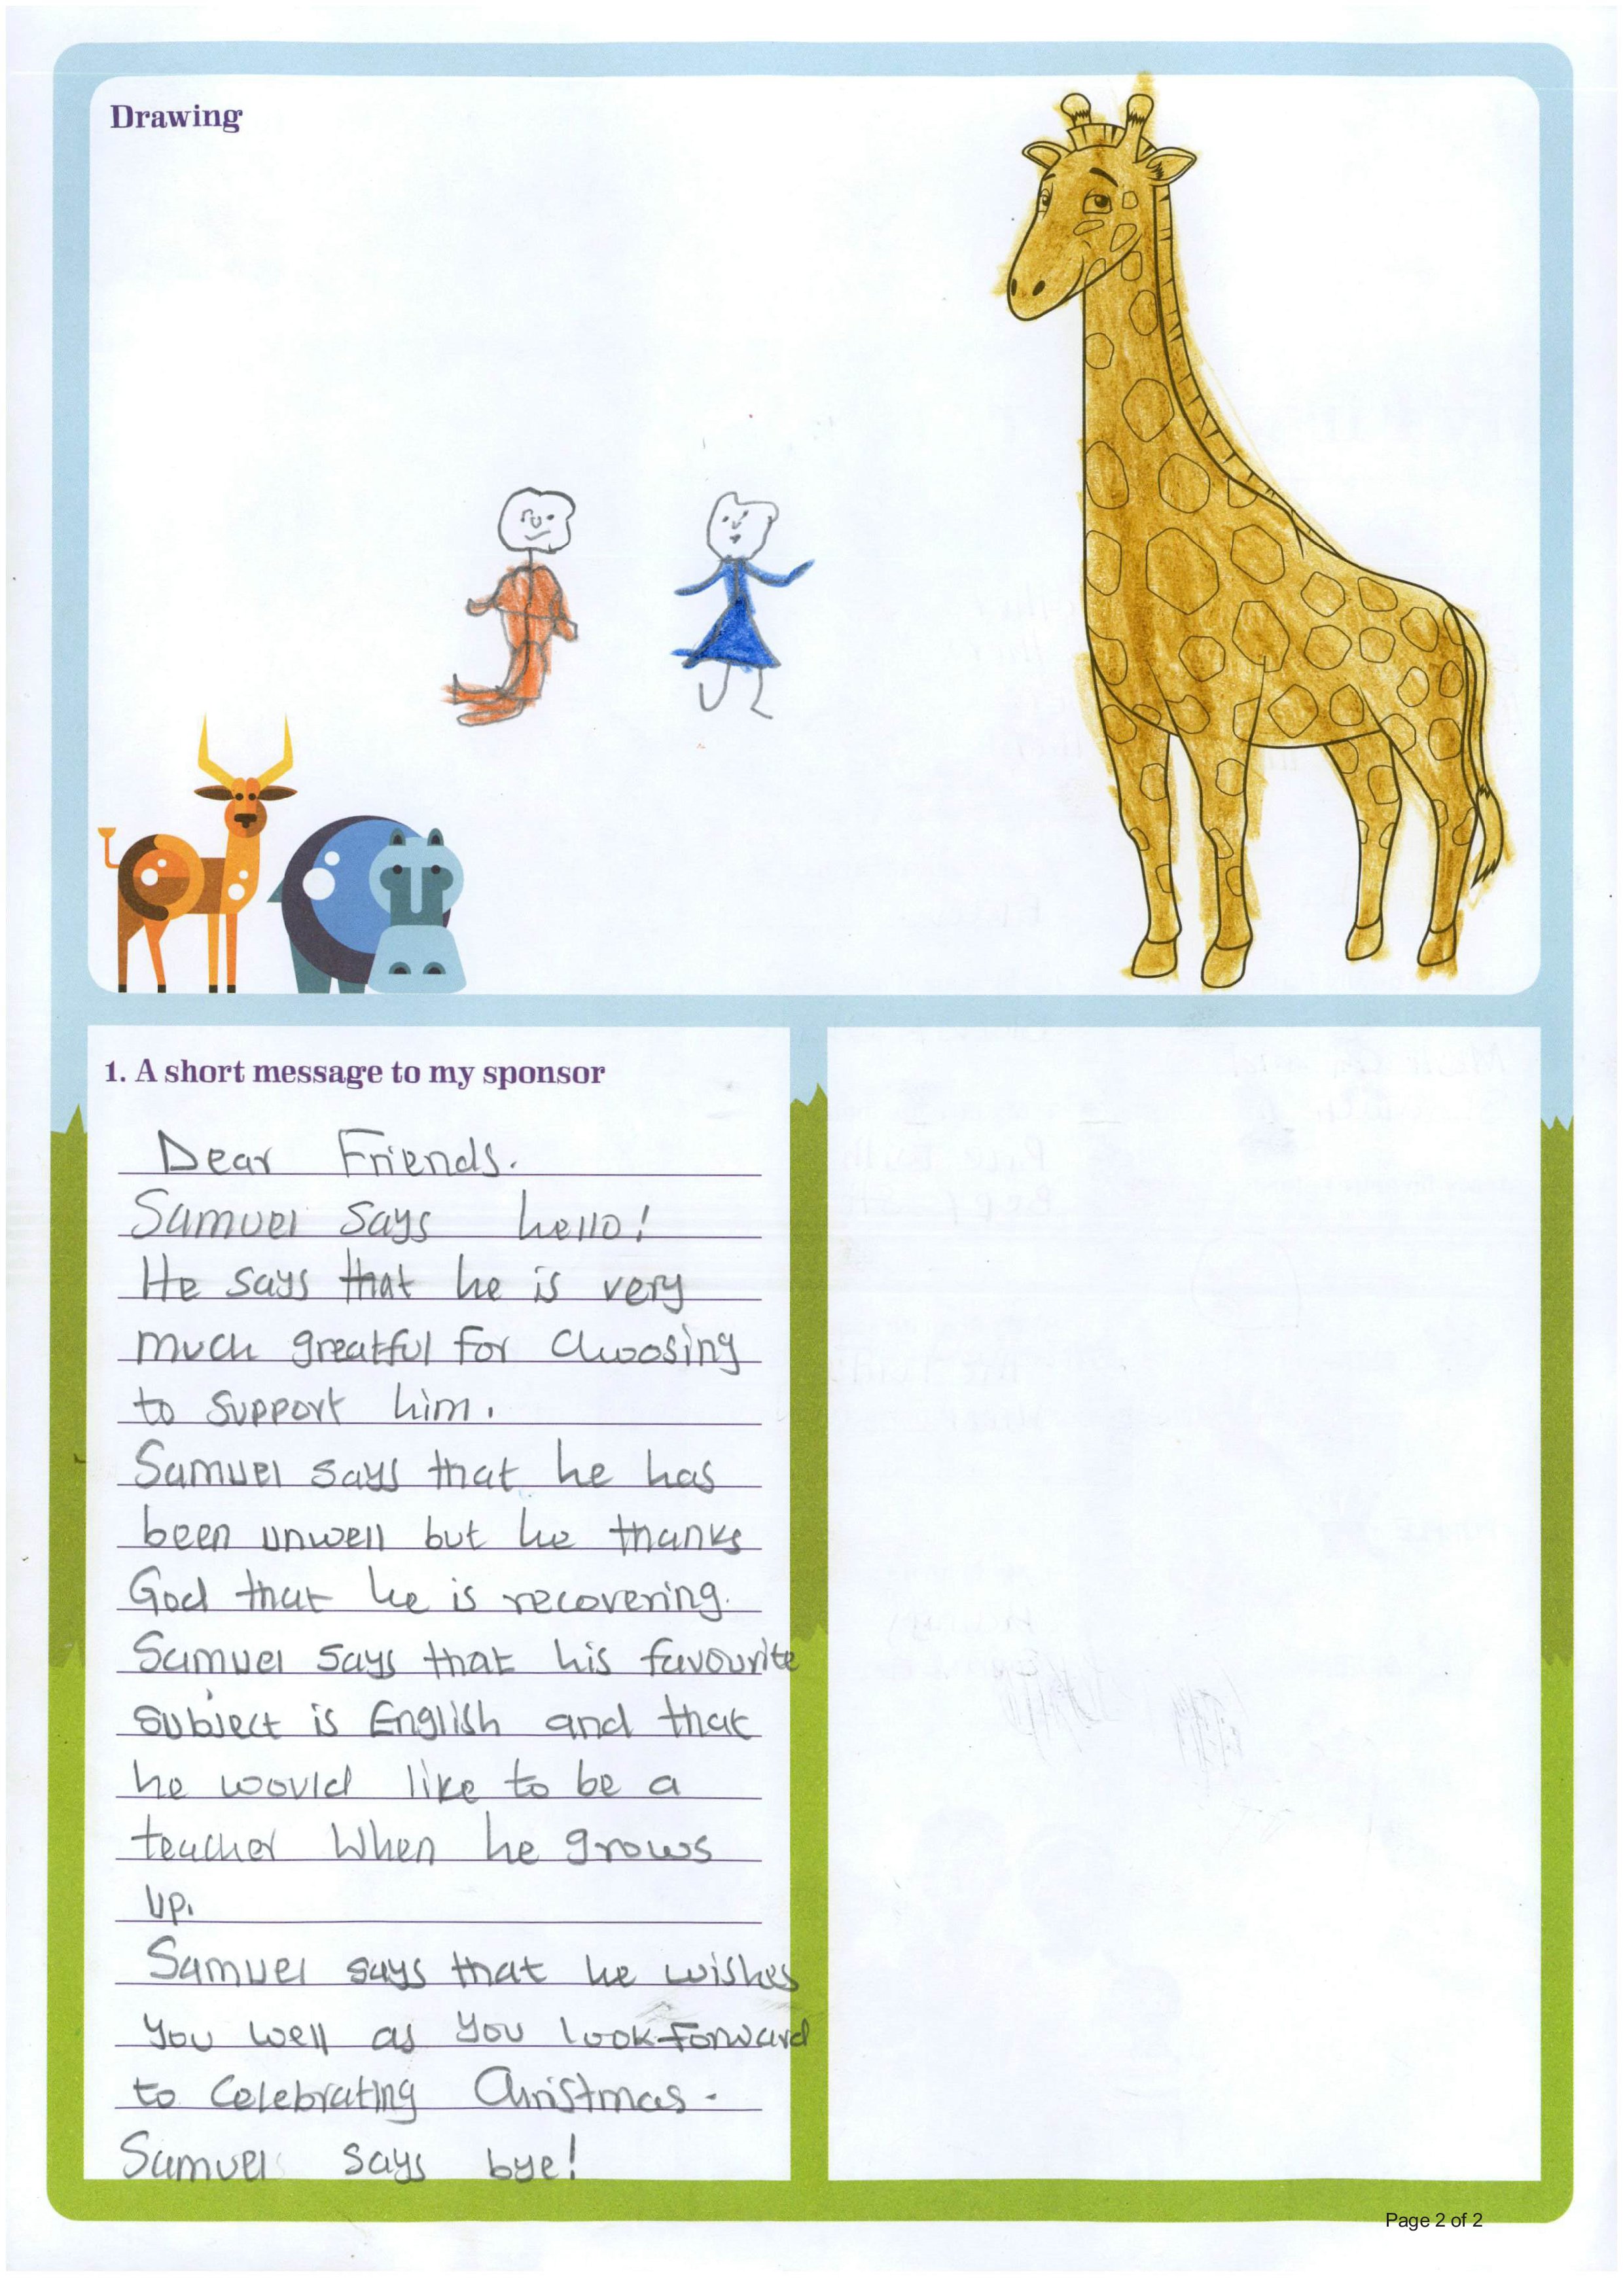 Drawing
1. A short message to my sponsor
Dear Friends.
Samuel says hello!
He says that he is very
much greatful for choosing
to support him.
Samuel says that he has
been unwell but he thanks
God that he is recovering.
Samuel says that his favourite
subject is English and that
he would like to be a
teacher When he grows
up.
Samuel says that he wishes
you well as you look forward
to celebrating Christmas.
Samuel says bye!
Page 2 of 2